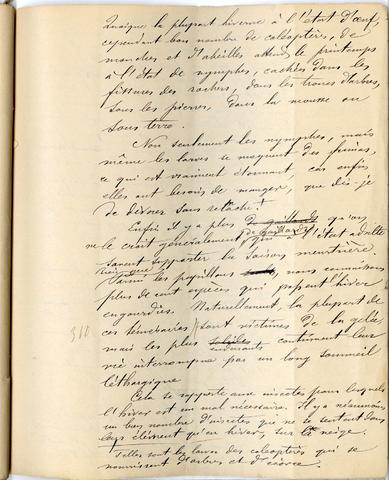 Quoique la plupart hiverne à l'état d'œuf,
cependant bon nombre de coléoptères, de
mouches et d'abeilles attend le printemps
à l'état de nymphes, cachées dans les
fissures des rochers, dans les troncs d'arbres,
sous les pierres, dans la mousse ou
sous terre.
Non seulement les nymphes, mais
même les larves se moquent des frimas,
ce qui est vraiment étonnant, car enfin
elles ont besoin de manger, que dis-je
de dévorer sans relâche!
Enfin il y a plus de gaillards qu'on
de gaillards
ne le croit généralement qui à l'état adulte
savent supporter la saison meurtrière.
Rien que
Parmi les papillons, nous connaissons
plus de cent espèces qui passent l'hiver
engourdies. Naturellement, la plupart de
ces téméraires sont victimes de la gelée
310
mais les plus solides continuent leur
endurants
vie interrompue par un long sommeil
léthargique
Cela se rapporte aux insectes pour lesquels
l'hiver est un mal nécessaire. Il y a néanmoins
un bon nombre d'insectes qui ne se sentent dans
leur élément qu'en hiver, sur la neige.
Telles sont les larves des coléoptères qui se
nourrissent d'arbres et d'écorce.